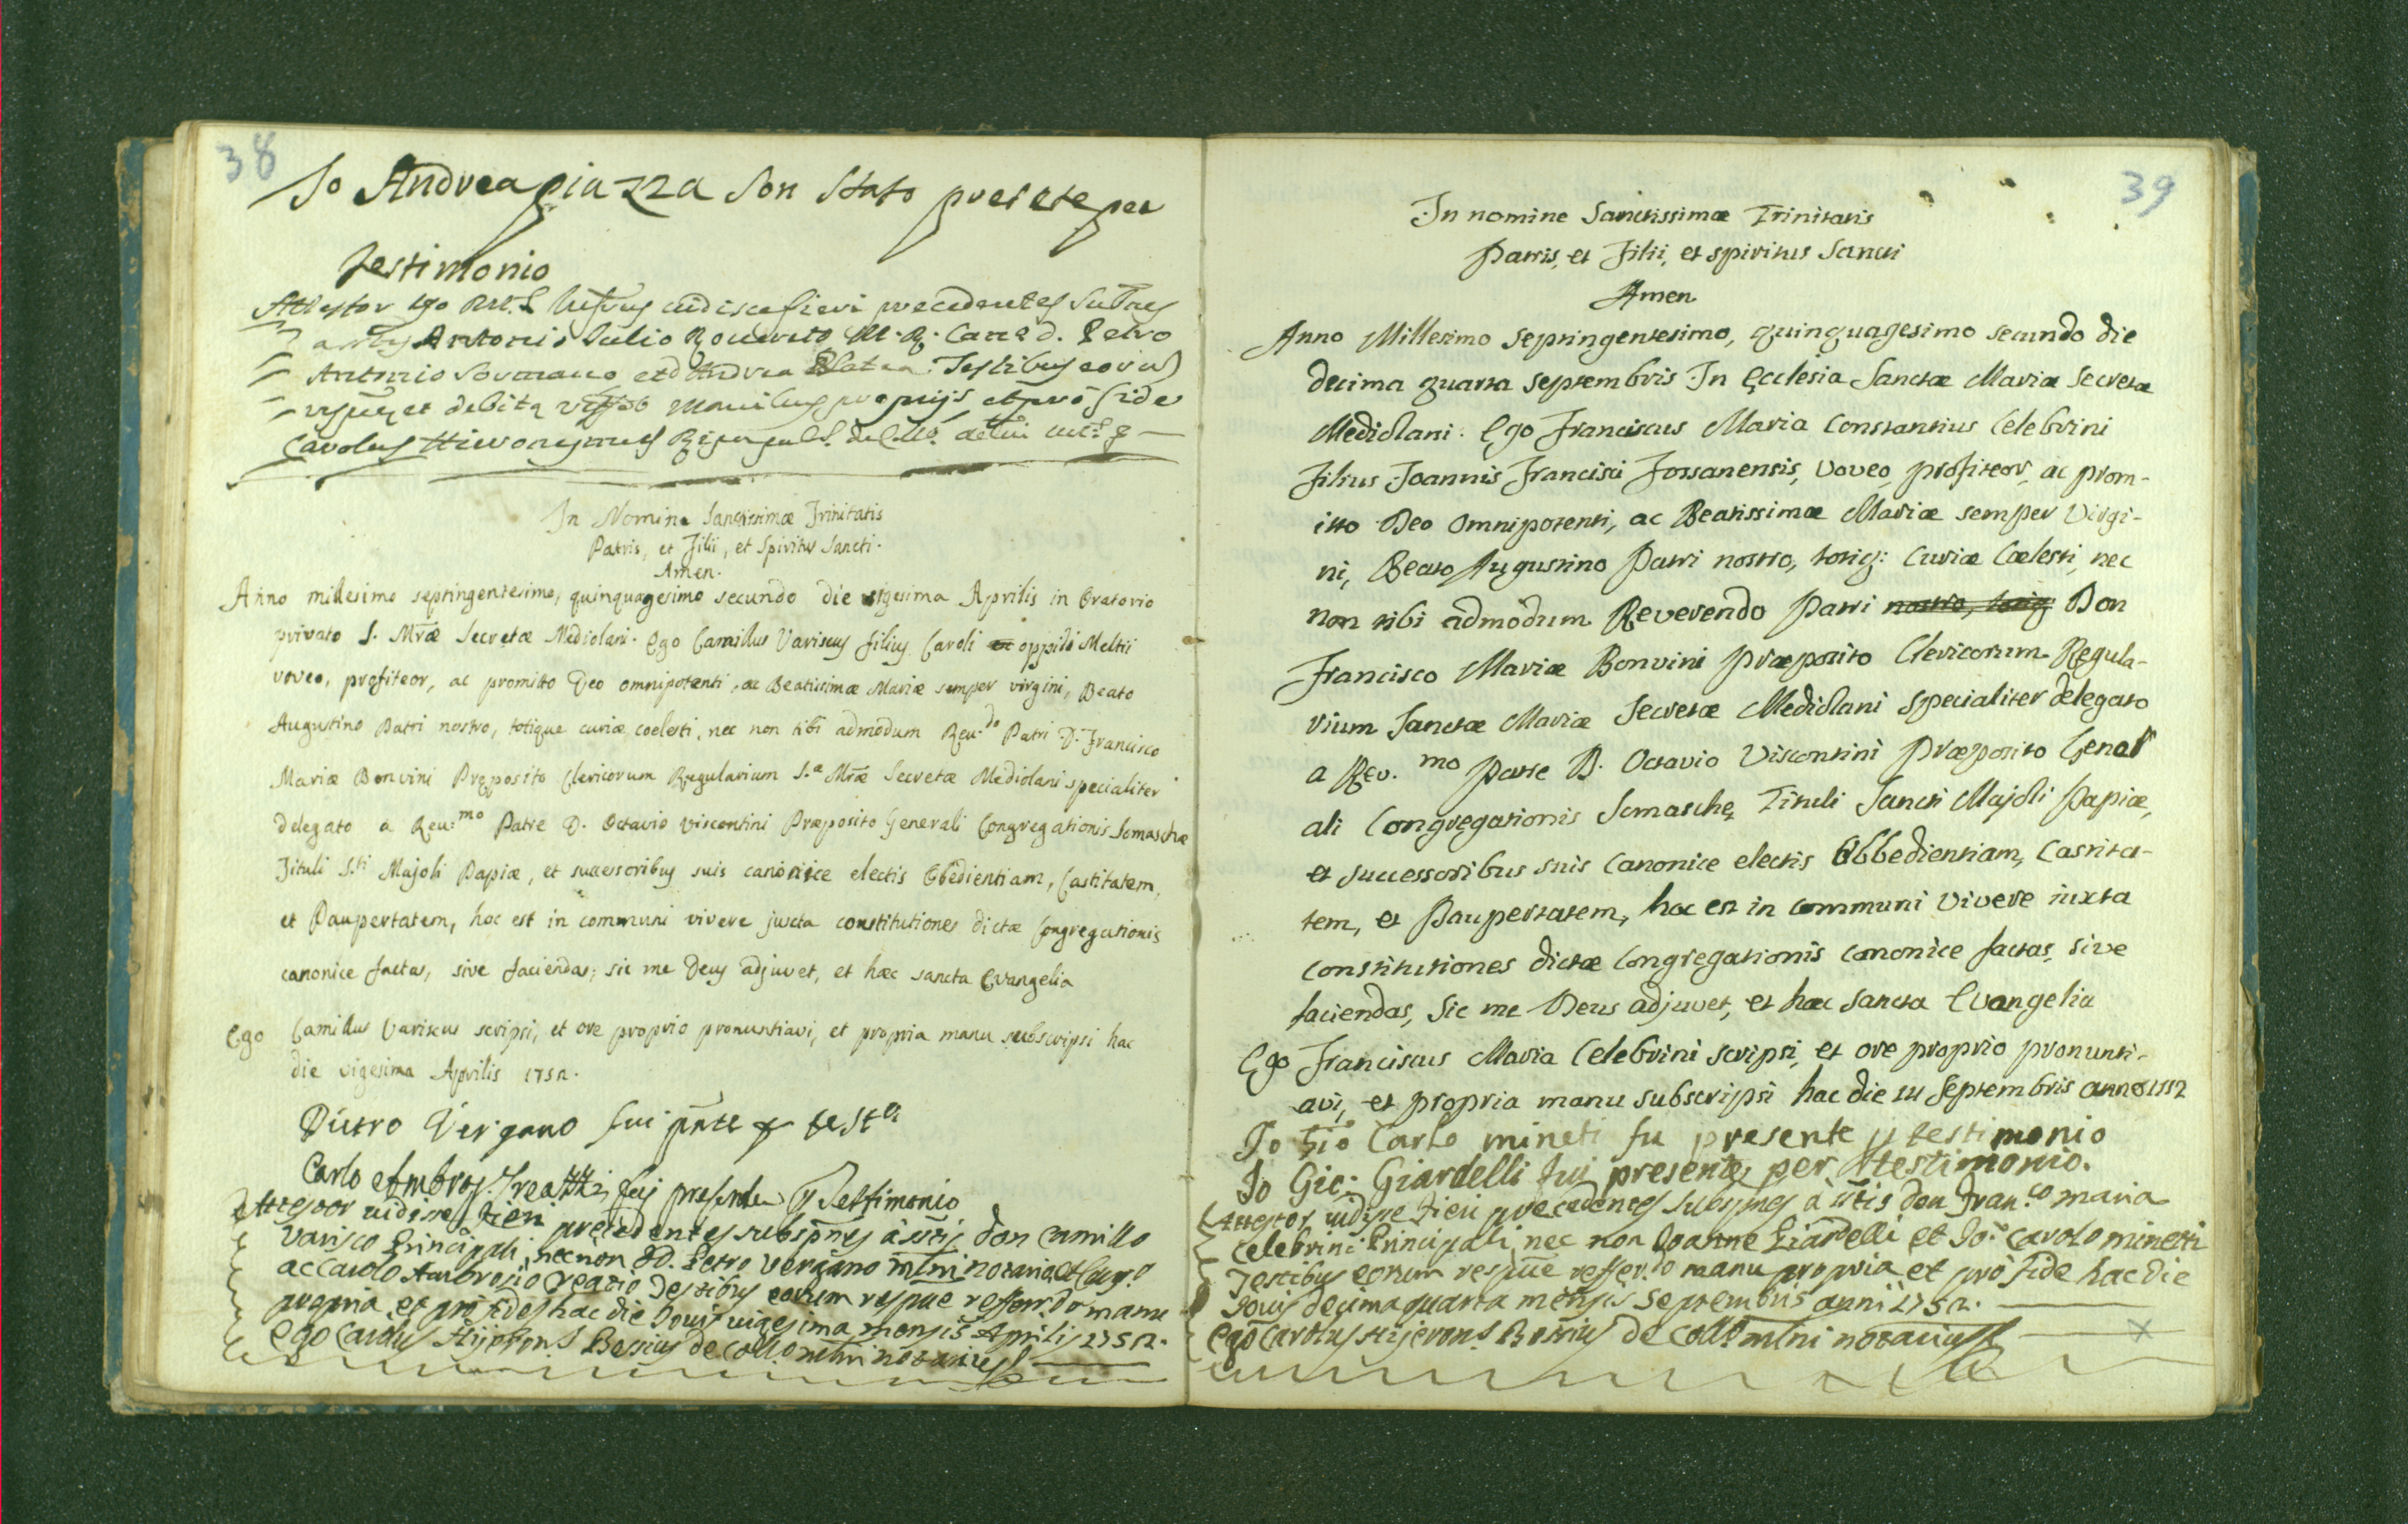 38
Io Andrea piazza son stato presete per
testimonio
Attestor ego
Antonio Julio Roverito M. R.
Antonio Sormano et d. Andrea Platea Testibus eorum
et debita manibus proprijs et pro fide
Carolus Hieronymus
In Nomine Sanctissimæ Trinitatis
Patris, et Filii, et Spiritus Sancti.
Amen.
Anno millesimo septingentesimo, quinquagesimo secundo die vigesima Aprilis in Oratorio
privato S. Mr̃æ Secretæ Mediolani. Ego Camillus Variscus filius Caroli oppidi Meltii
voveo, profiteor, ac promitto Deo omnipotenti, ac Beatissimæ Mariæ semper virgini, Beato
Augustino Patri nostro, totique curiæ coelesti, nec non tibi admodum Reu.do Patri D. Francisco
Mariæ Bonvini Pręposito Clericorum Regularium S.æ Mr̃æ Secretæ Mediolani specialiter
delegato a Reu:mo Patre D. Octavio Viscontini Præposito Generali Congregationis Somaschæ
Tituli S.ti Majoli Papiæ, et successoribus suis canonice electis Obedientiam, Castitatem,
et Paupertatem, hoc est in communi vivere juxta constitutiones dictæ Congregationis
canonice factas, sive faciendas; sic me Deus adjuvet, et hæc sancta Evangelia
Ego Camillus Variscus scripsi, et ore proprio pronuntiavi, et propria manu subscripsi hac
die vigesima Aprilis 1752.
Pietro Vergano fui pñte
Carlo Ambros. Treatti fuj presente p Testimonio
Attestor vidisse fieri precedentes subspñes à sctis don Camillo
Varisco Principali, necnon DD. Petro Vergano mlni notario
ac Carolo Ambrosio Testibus eorum respue reffer.do manu
propria et pro fide hac die Jovis vigesima mensis Aprilis 1752.
Ego Carolus Hijeron.s Bossius de Coll.o mlni notarius
39
In nomine Sanctissimæ Trinitatis
Patris, et Filii, et Spiritus Sancti
Amen
Anno Millesimo Septingentesimo, quinquagesimo secundo die
decima quarta Septembris In Ecclesia Sanctæ Mariæ Secretæ
Mediolani. Ego Franciscus Maria Constantius Celebrini
Filius Joannis Francisci Fossanensis, voveo, profiteor, ac prom-
itto Deo Omnipotenti, ac Beatissimæ Mariæ semper Virgi-
ni, Beato Augustino Patri nostro, totiq: Curiæ Cœlesti, nec
non tibi admodum Reverendo Patri nostro, totiq Don
Francisco Mariæ Bonvini Præposito Clericorum Regula-
rium Sanctæ Mariæ Secretæ Mediolani specialiter delegato
a Rev. mo Patre D. Octavio Viscontini Præposito Gener
ali Congregationis Somaschę Tituli Sancti Majoli Papiæ,
et successoribus suis Canonice electis Obbedientiam, Castita-
tem, et Paupertatem, hoc est in communi vivere iuxta
constitutiones dictæ Congregationis canonice factas, sive
faciendas, Sic me Deus adjuvet, et hæc Sancta Evangelia
Ego Franciscus Maria Celebrini scripsi, et ore proprio pronunti-
avi, et propria manu subscripsi hac die 14 Septembris anno 1752
Io Gio Carlo mineti fu presente p testimonio
Io Gio: Giardelli fui presente per testimonio.
Attestor vidisse fieri precedentes subspnes à sctis don Fran.co maria
Celebrini Principali, nec non Joanne Giardelli et Jo: Carolo minetti
Testibus eorum respue reffer.do manu propria et pro fide hac die
Jovis decima quarta mensis Septembris anni 1752.
Ego Carolus Hijeron.s Bossius de Coll.o mlni notarius